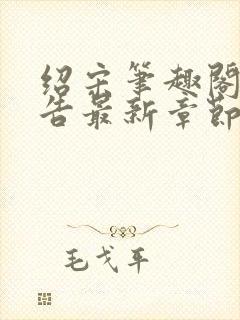 绍宋笔趣阁
告最新章节
毛戈平